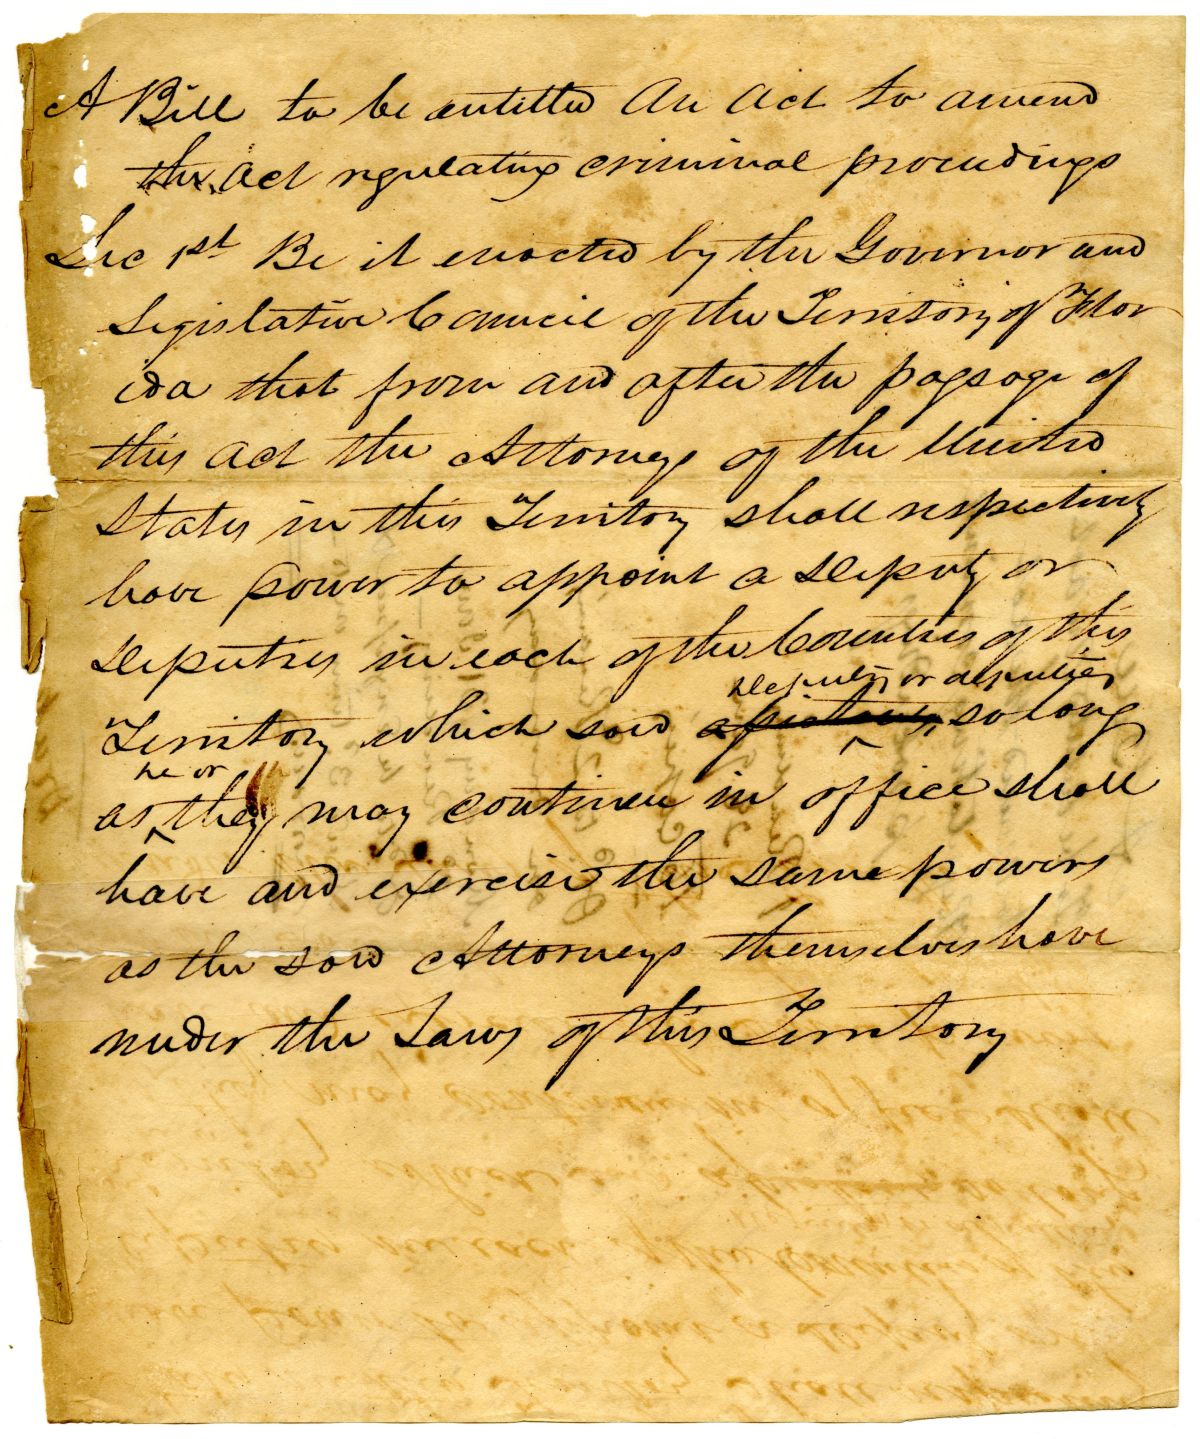 A Bill to be entitled An Act to amend
the Act regulating criminal proceedings
Sec 1st Be it enacted by the Governor and
Legislative Council of the Territory of Flor
ida that from and after the passage of
this Act the Attorneys of the United
States in this Territory shall respectively
have power to appoint a Deputy or
Deputies in each of the Counties of this
Deputy or deputies
Territory which said so long
he or
as they may continue in office shall
have and exercise the same powers
as the said Attorneys themselves have
under the Laws of this Territory